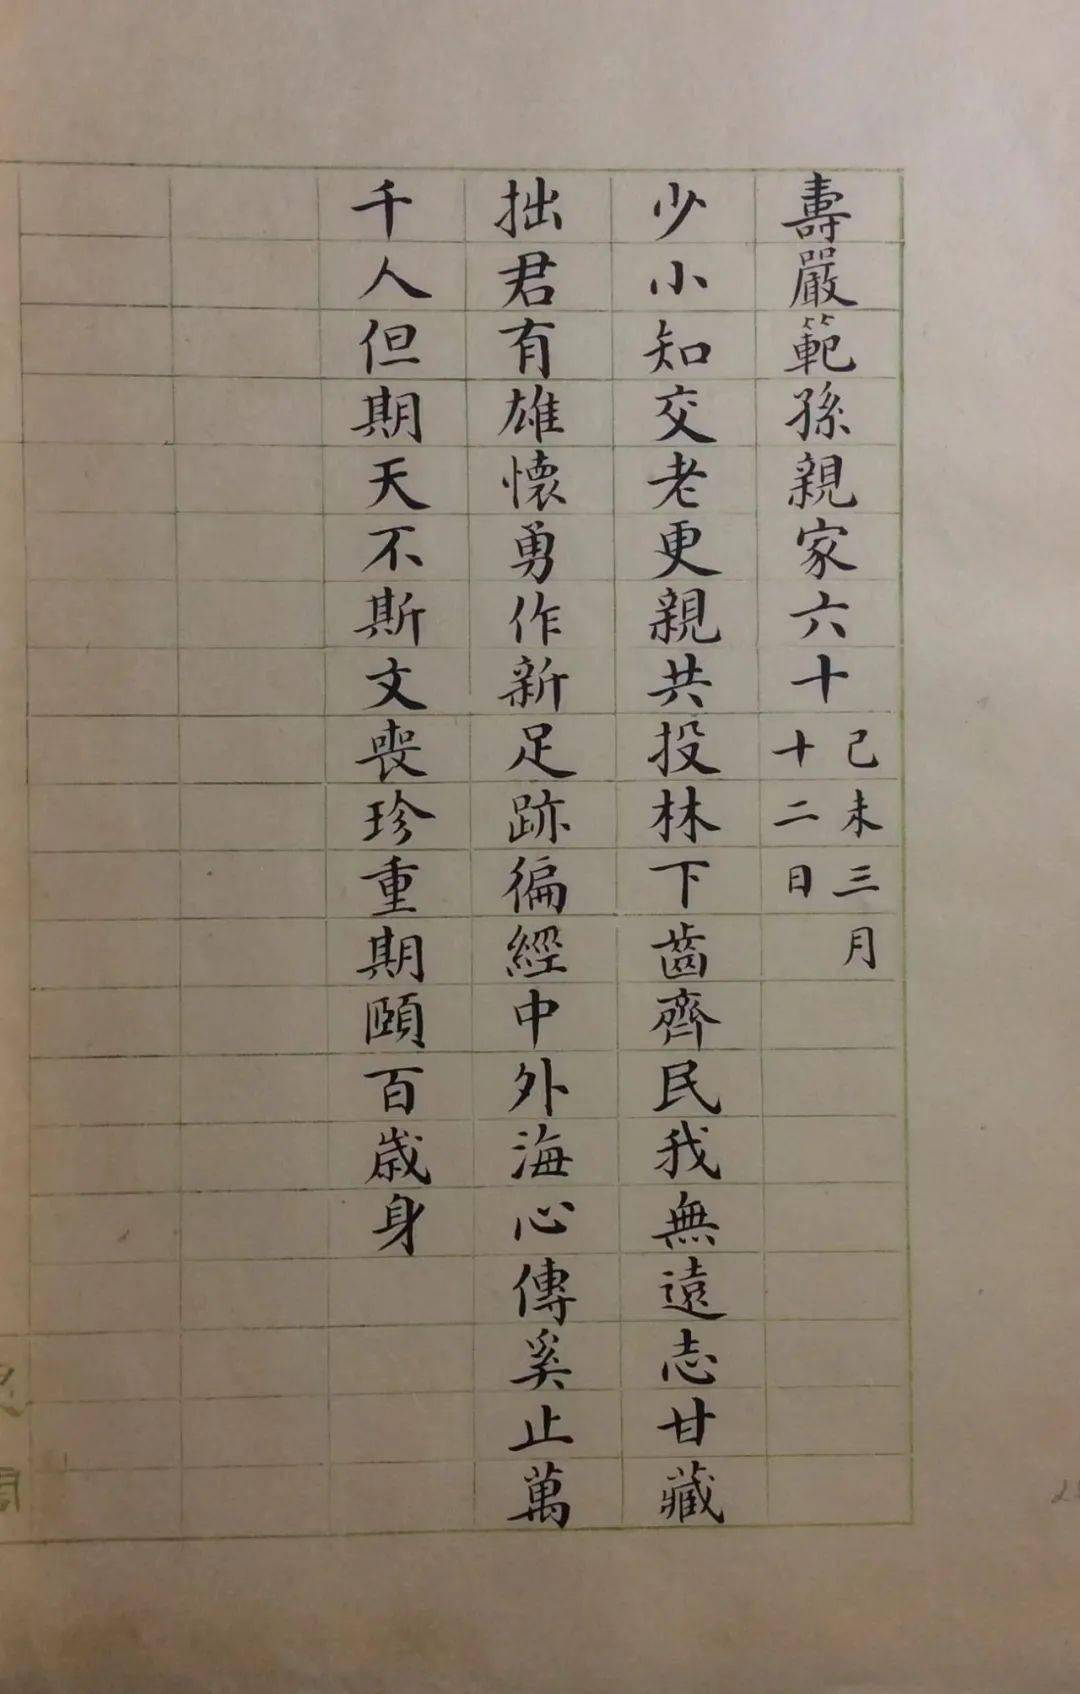 壽嚴範孫親家六十己未三月十二日
少小知交老更親共投林下齒齊民我無遠志甘藏
拙君有雄懷勇作新足跡徧經中外海心傳奚止萬
千人但期天不斯文喪珍重期頤百歲身